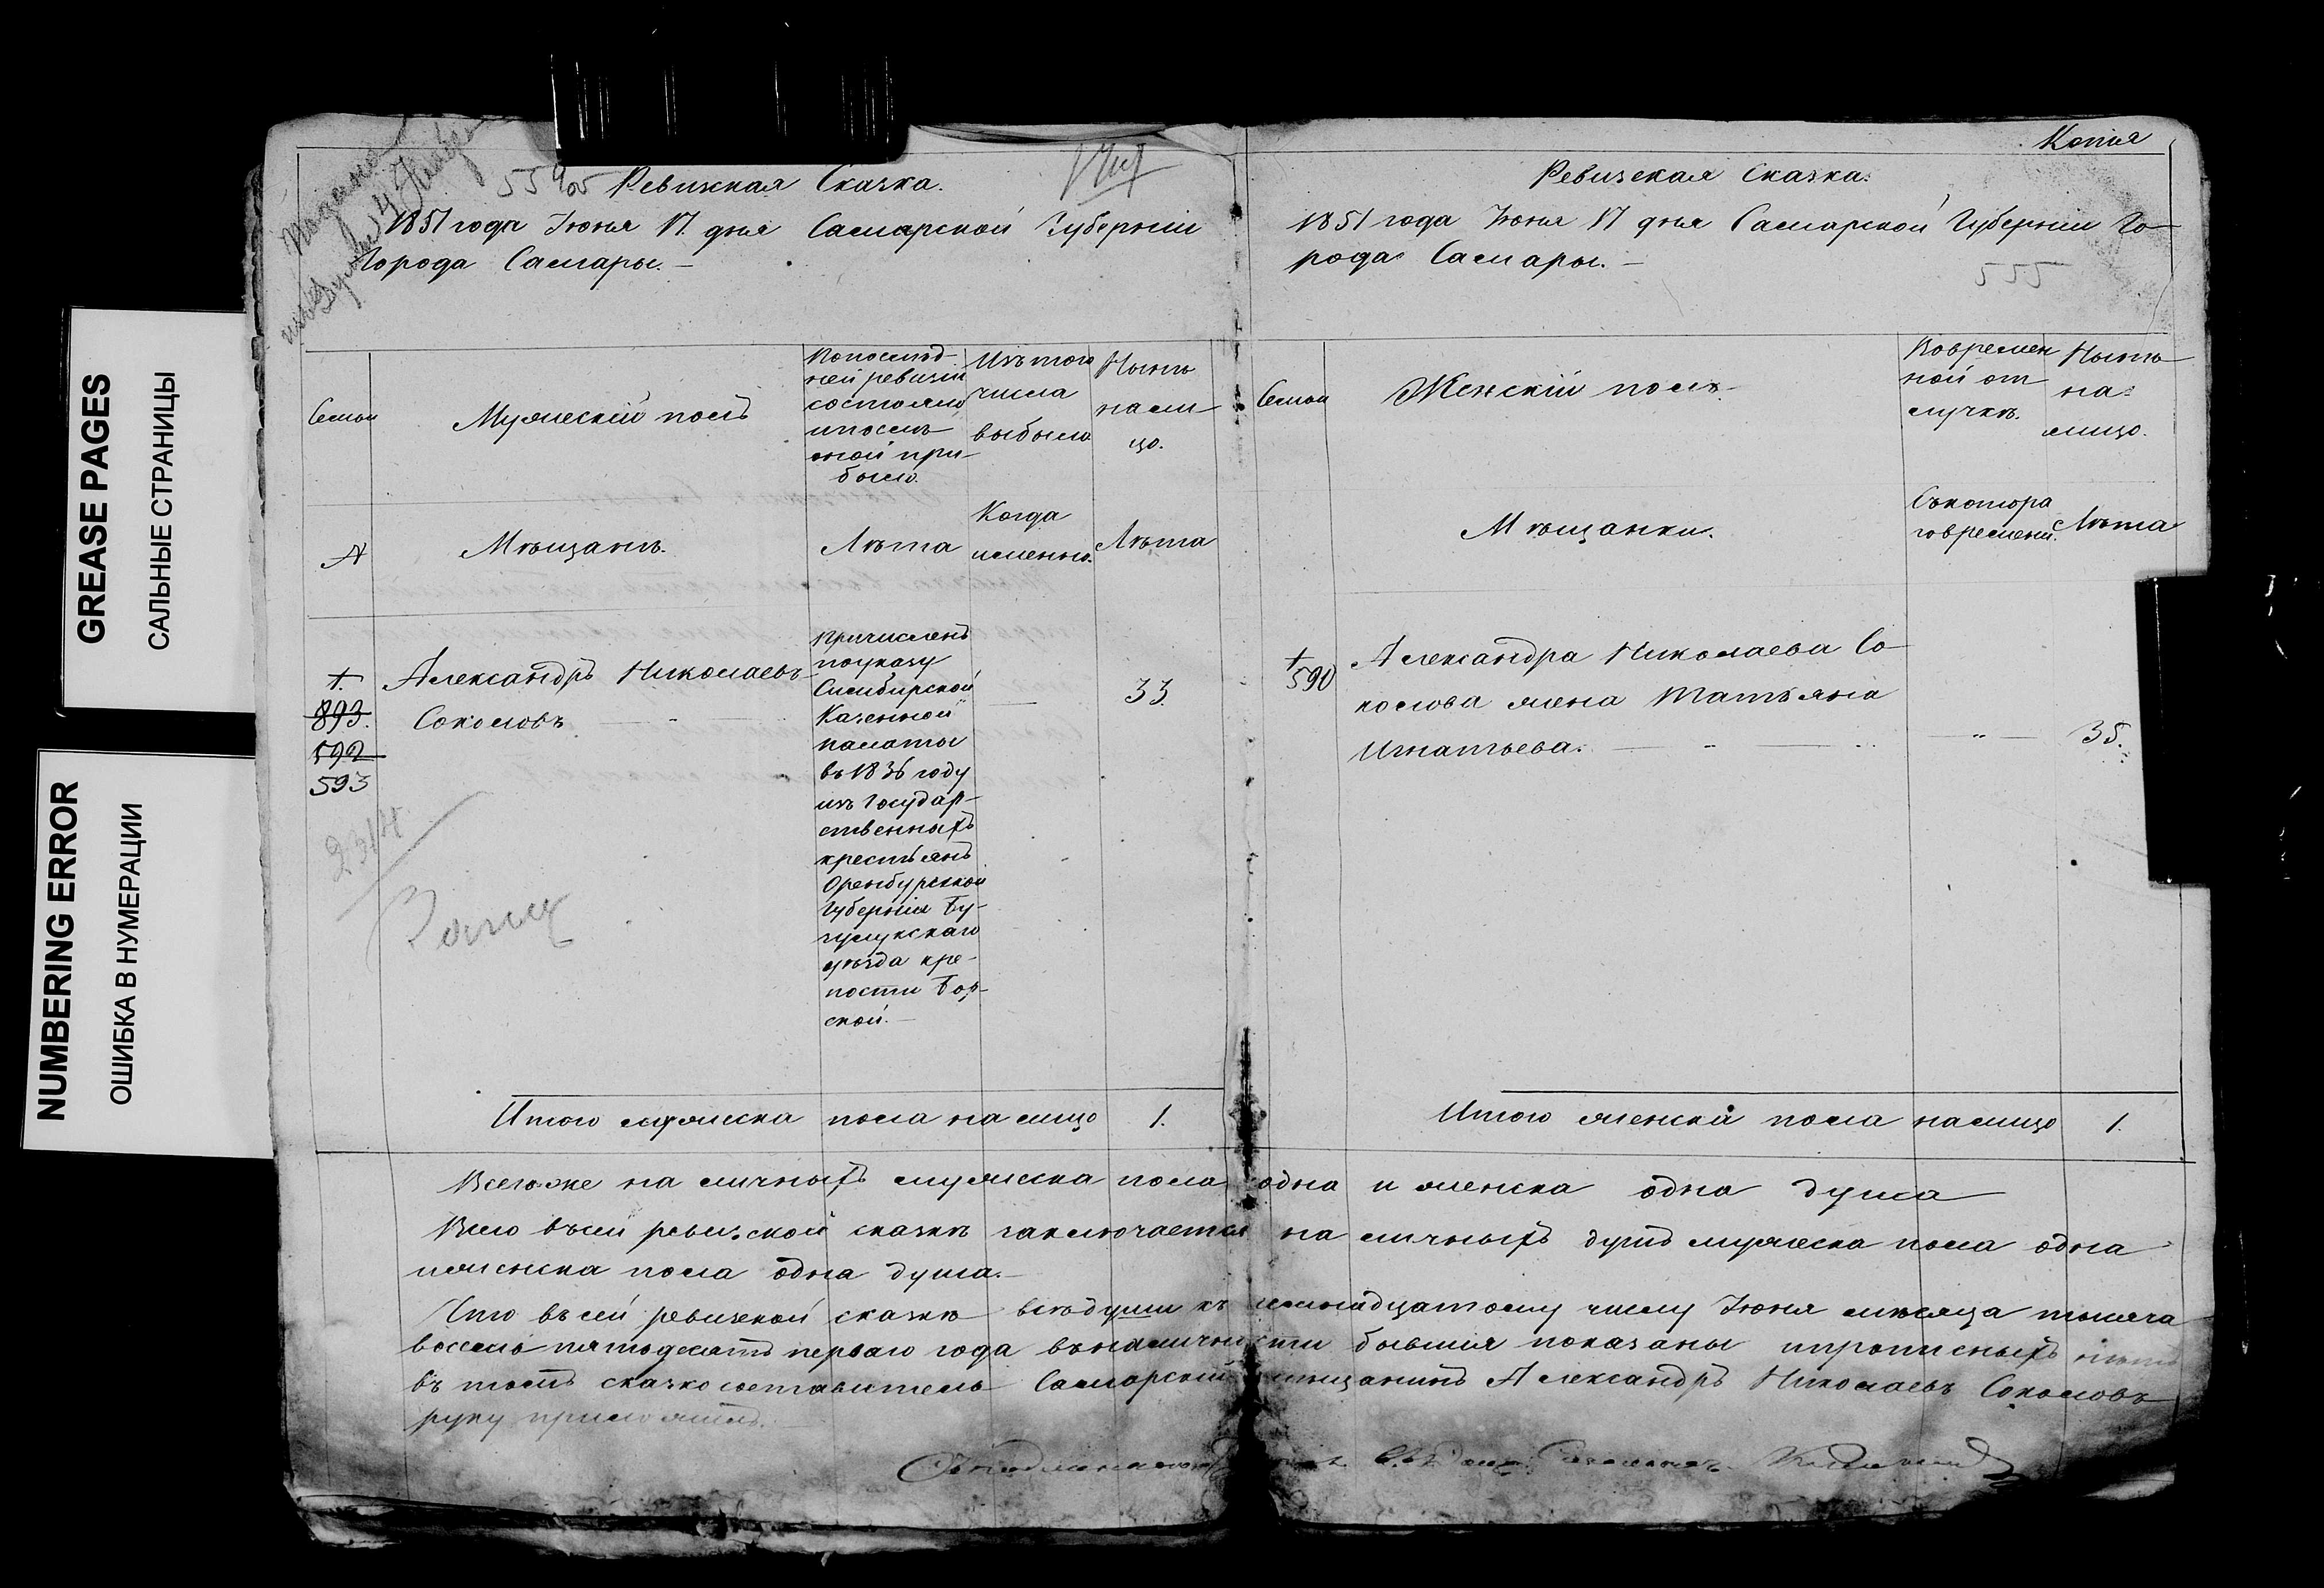 GREASE PAGES
САЛЬНЫЕ СТРАНИЦЫ
NUMBERING ERROR
ОШИБКА В НУМЕРАЦИИ
Ревизская Сказка.
1851 года Июня 17. дня Самарской Губерніи
Города Самары.
Семьи
Мужескій полъ
Попослѣд-
ней ревизіи
состояло
ипослѣ
оной при-
было.
Изътого
числа
выбыло
Нынѣ
нали-
цо.
Мѣщанъ.
Лѣта
Когда
именно.
Лѣта
893.
592
593
Александръ Николаевъ
Соколовъ
Причисленъ
поуказу
Симбирской
Казенной
палаты
въ 1836 году
изъ Государ-
ственныхъ
крестьянъ
Оренбургской
Губерніи Бу-
зулукскаго
уѣзда крѣ-
пости Бор-
ской.
33.
2314
Итого мужеска пола на лицо 1.
Копія
Ревизская Сказка.
1851 года Июня 17 дня Самарской Губерніи Го-
рода Самары.
555
Семьи
Женскій полъ
Вовремен
ной от
лучкѣ.
Нынѣ
на-
лицо.
Мѣщанки.
Съкотора
говремени.
Лѣта
590
Александра Николаева Со-
колова жена Татьяна
Игнатьева.
35.
Итого женска пола налицо 1.
Всегоже на личныхъ мужеска пола одна и женска одна душа
Всего въсей ревизской сказкѣ заключается на личныхъ душъ мужеска пола одна
иженска пола одна душа.
Что въсей ревизской сказкѣ всѣдуши къ семнадцатому числу Июня мѣсяца тысяча
восемь пятьдесятъ перваго года въналичности бывшія показаны ипрописныхъ нѣтъ
въ томъ сказкосоставитель Самарскій мѣщанинъ Александръ Николаевъ Соколовъ
руку приложилъ.